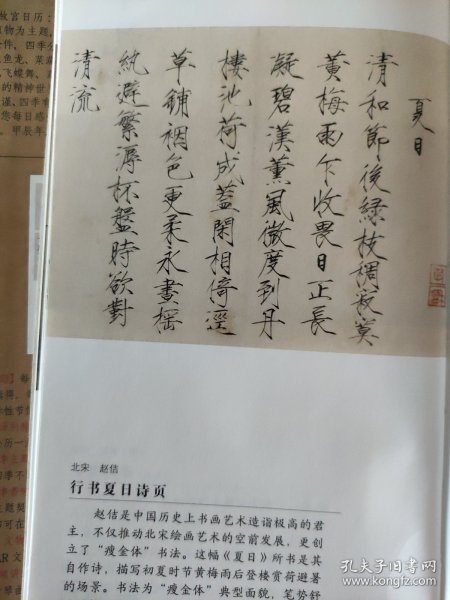 夏日
清和節後綠枝稠寂寞
黃梅雨乍收畏日正長
凝碧漢薰風微度到丹
樓池荷成蓋閑相倚逕
草鋪裀色更柔永晝搖
紈避繁溽杯盤時欲對
清流
北宋 赵佶
行书夏日诗页
赵佶是中国历史上书画艺术造诣极高的君
主,不仅推动北宋绘画艺术的空前发展,更创
立了“瘦金体”书法。这幅《夏日》所书是其
自作诗,描写初夏时节黄梅雨后登楼赏荷避暑
的场景。书法为“瘦金体”典型面貌,笔势舒
故宫日历:
物为主题,
件,四季分
的精神世
谨、四季有
您每日感
甲辰年
孔夫子旧书网